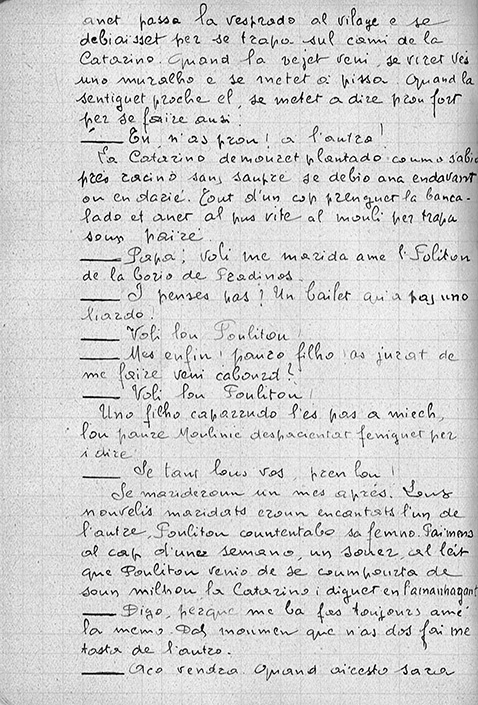 anet passa la vesprado al vilage e se
debiaisset per se trapa sul cami de la
Catarino. Quand la vejet veni, se viret ves
uno muralho e se metet a pissa. Quand la
sentiguet proche el, se metet a dire prou fort
per se faire ausi :
— En, n'as prou ! a l'autro !
La Catarino demouret plantado coumo s'abio
pres racino sans saupre se debio ana endavant
ou en darié. Tout d'un cop prenguet la banca-
lado et anet al pus vite al mouli per trapa
soun paire.
— Papa, voli me marida ame l'Politou
de la borio de Pradinos.
— I penses pas ! Un bailet qu'a pas uno
liardo.
— Voli lou Pouliton !
— Mes enfin ! pauro filho ! as jurat de
me faire veni cabourd !
— Voli lou Pouliton !
Uno filho caparrudo l'es pas a miech,
lou paure Moulinie despacientat feniguet per
i dire
— Se tant lous vos, pren lou !
Se marideroun un mes aprés. Lous
nouvelis maridats eroun encantats l'un de
l'autre, Pouliton countentabo sa femno. Paimens
al cap d'uno semano, un souer, al leit
que Pouliton venio de se coumpourta de
soun milhou la Catarino i diguet en l'amanhagant
— Digo, perque me ba fas toujours amé
la memo. Dal moumen que n'as dos fai me
tasta de l'autro.
— Aco vendra. Quand aicesto sara